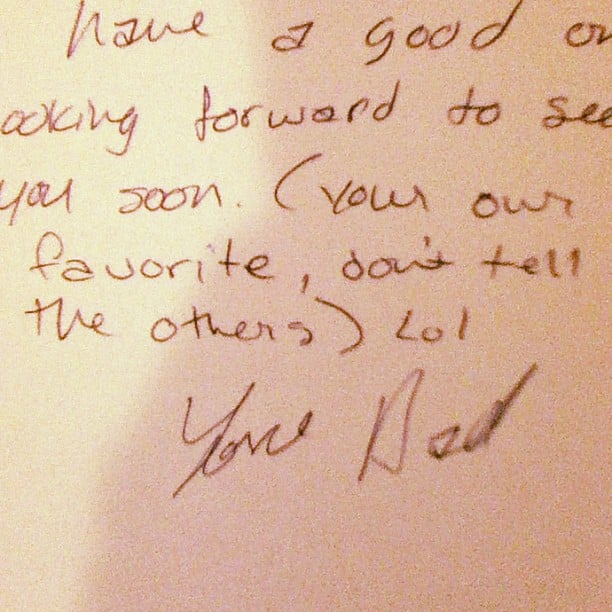 have a good on
ooking forward to see
you soon. (your our
favorite, don't tell
the others) Lol
Dad